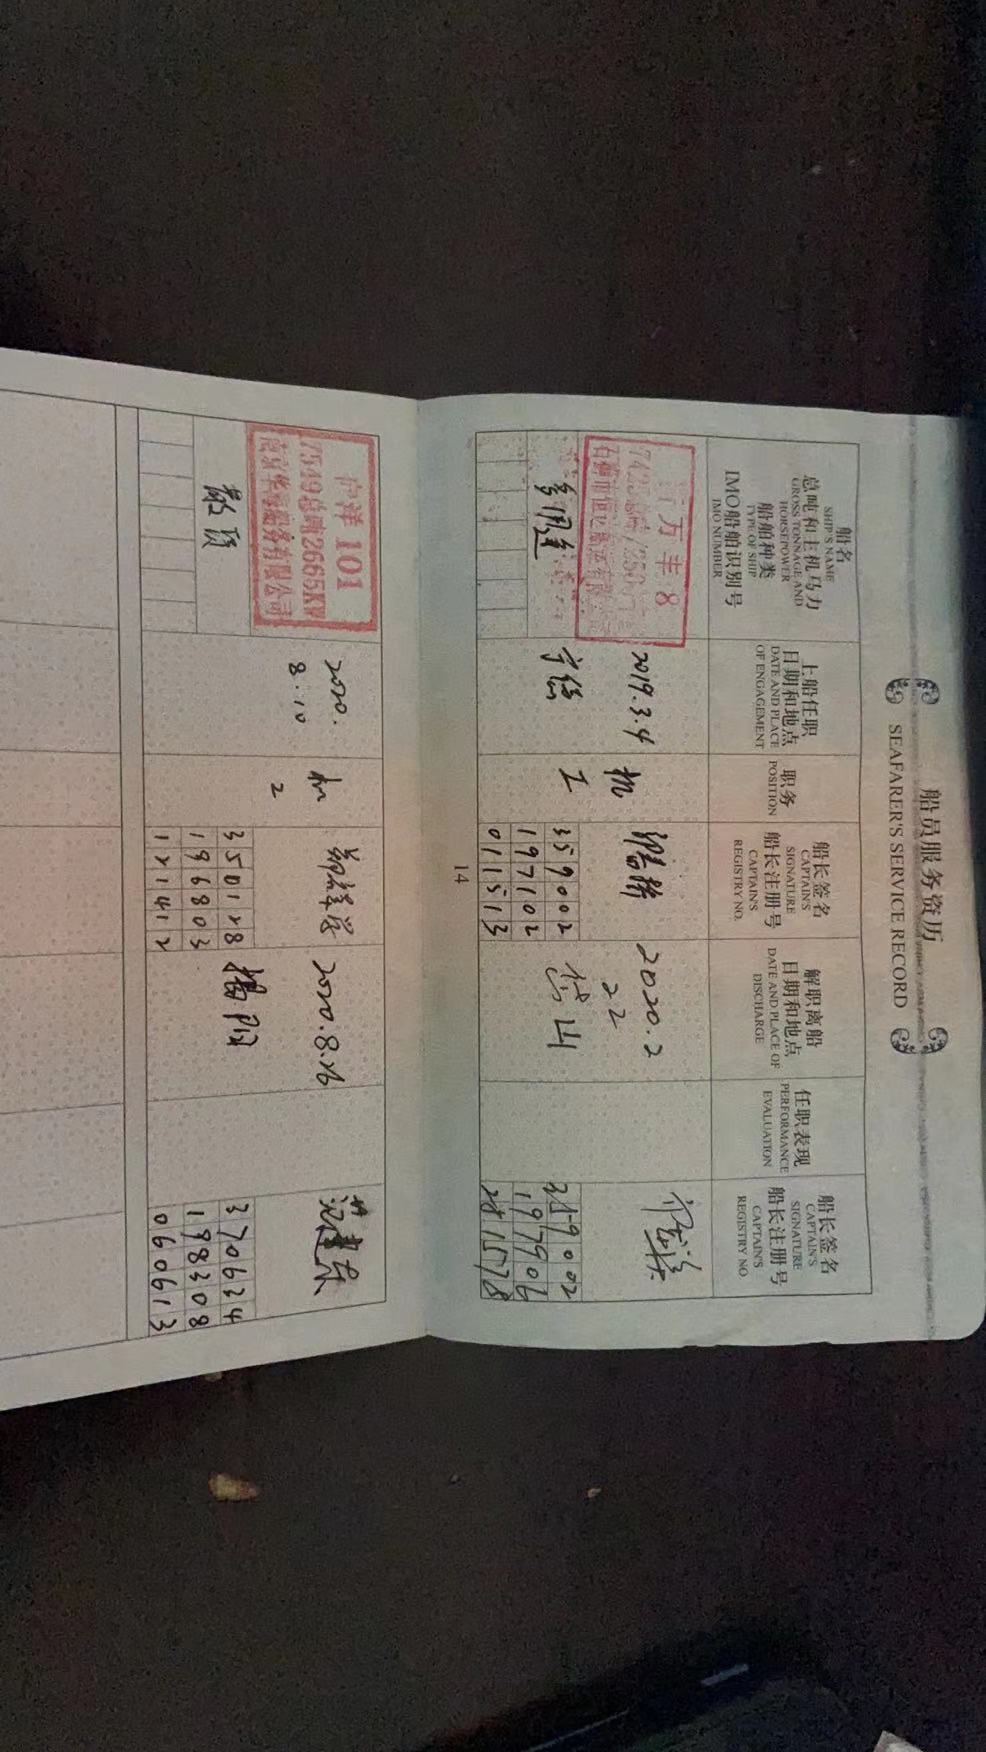 船员服务资历
SEAFARER'S SERVICE RECORD
船名
SHIP'S NAME
总吨和主机马力
GROSS TONNAGE AND
HORSEPOWER
船舶种类
TYPE OF SHIP
IMO船舶识别号
IMO NUMBER
上船任职
日期和地点
DATE AND PLACE
OF ENGAGEMENT
职务
POSITION
船长签名
CAPTAIN'S
SIGNATURE
船长注册号
CAPTAIN'S
REGISTRY NO.
解职离船
日期和地点
DATE AND PLACE OF
DISCHARGE
任职表现
PERFORMANCE
EVALUATION
船长签名
CAPTAIN'S
SIGNATURE
船长注册号
CAPTAIN'S
REGISTRY NO
万丰8
多用途
2019.3.4
宁德
机
工
359002
197102
011513
2020.2
22
岱山
359002
197906
14
洋101
7549总吨2665KW
南京华 船务有限公司
散货
2020.
8.10
机
2
350128
196803
121412
2020.8.26
揭阳
370634
198308
060613